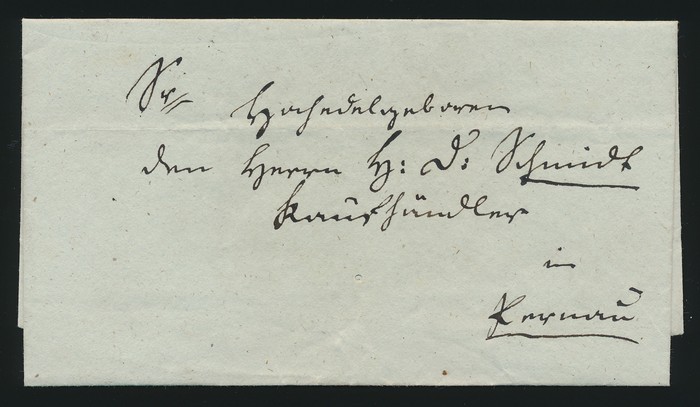 Sr Hochedelgeboren
den Herrn H: D: Schmidt
Kaufhändler
in
Pernau